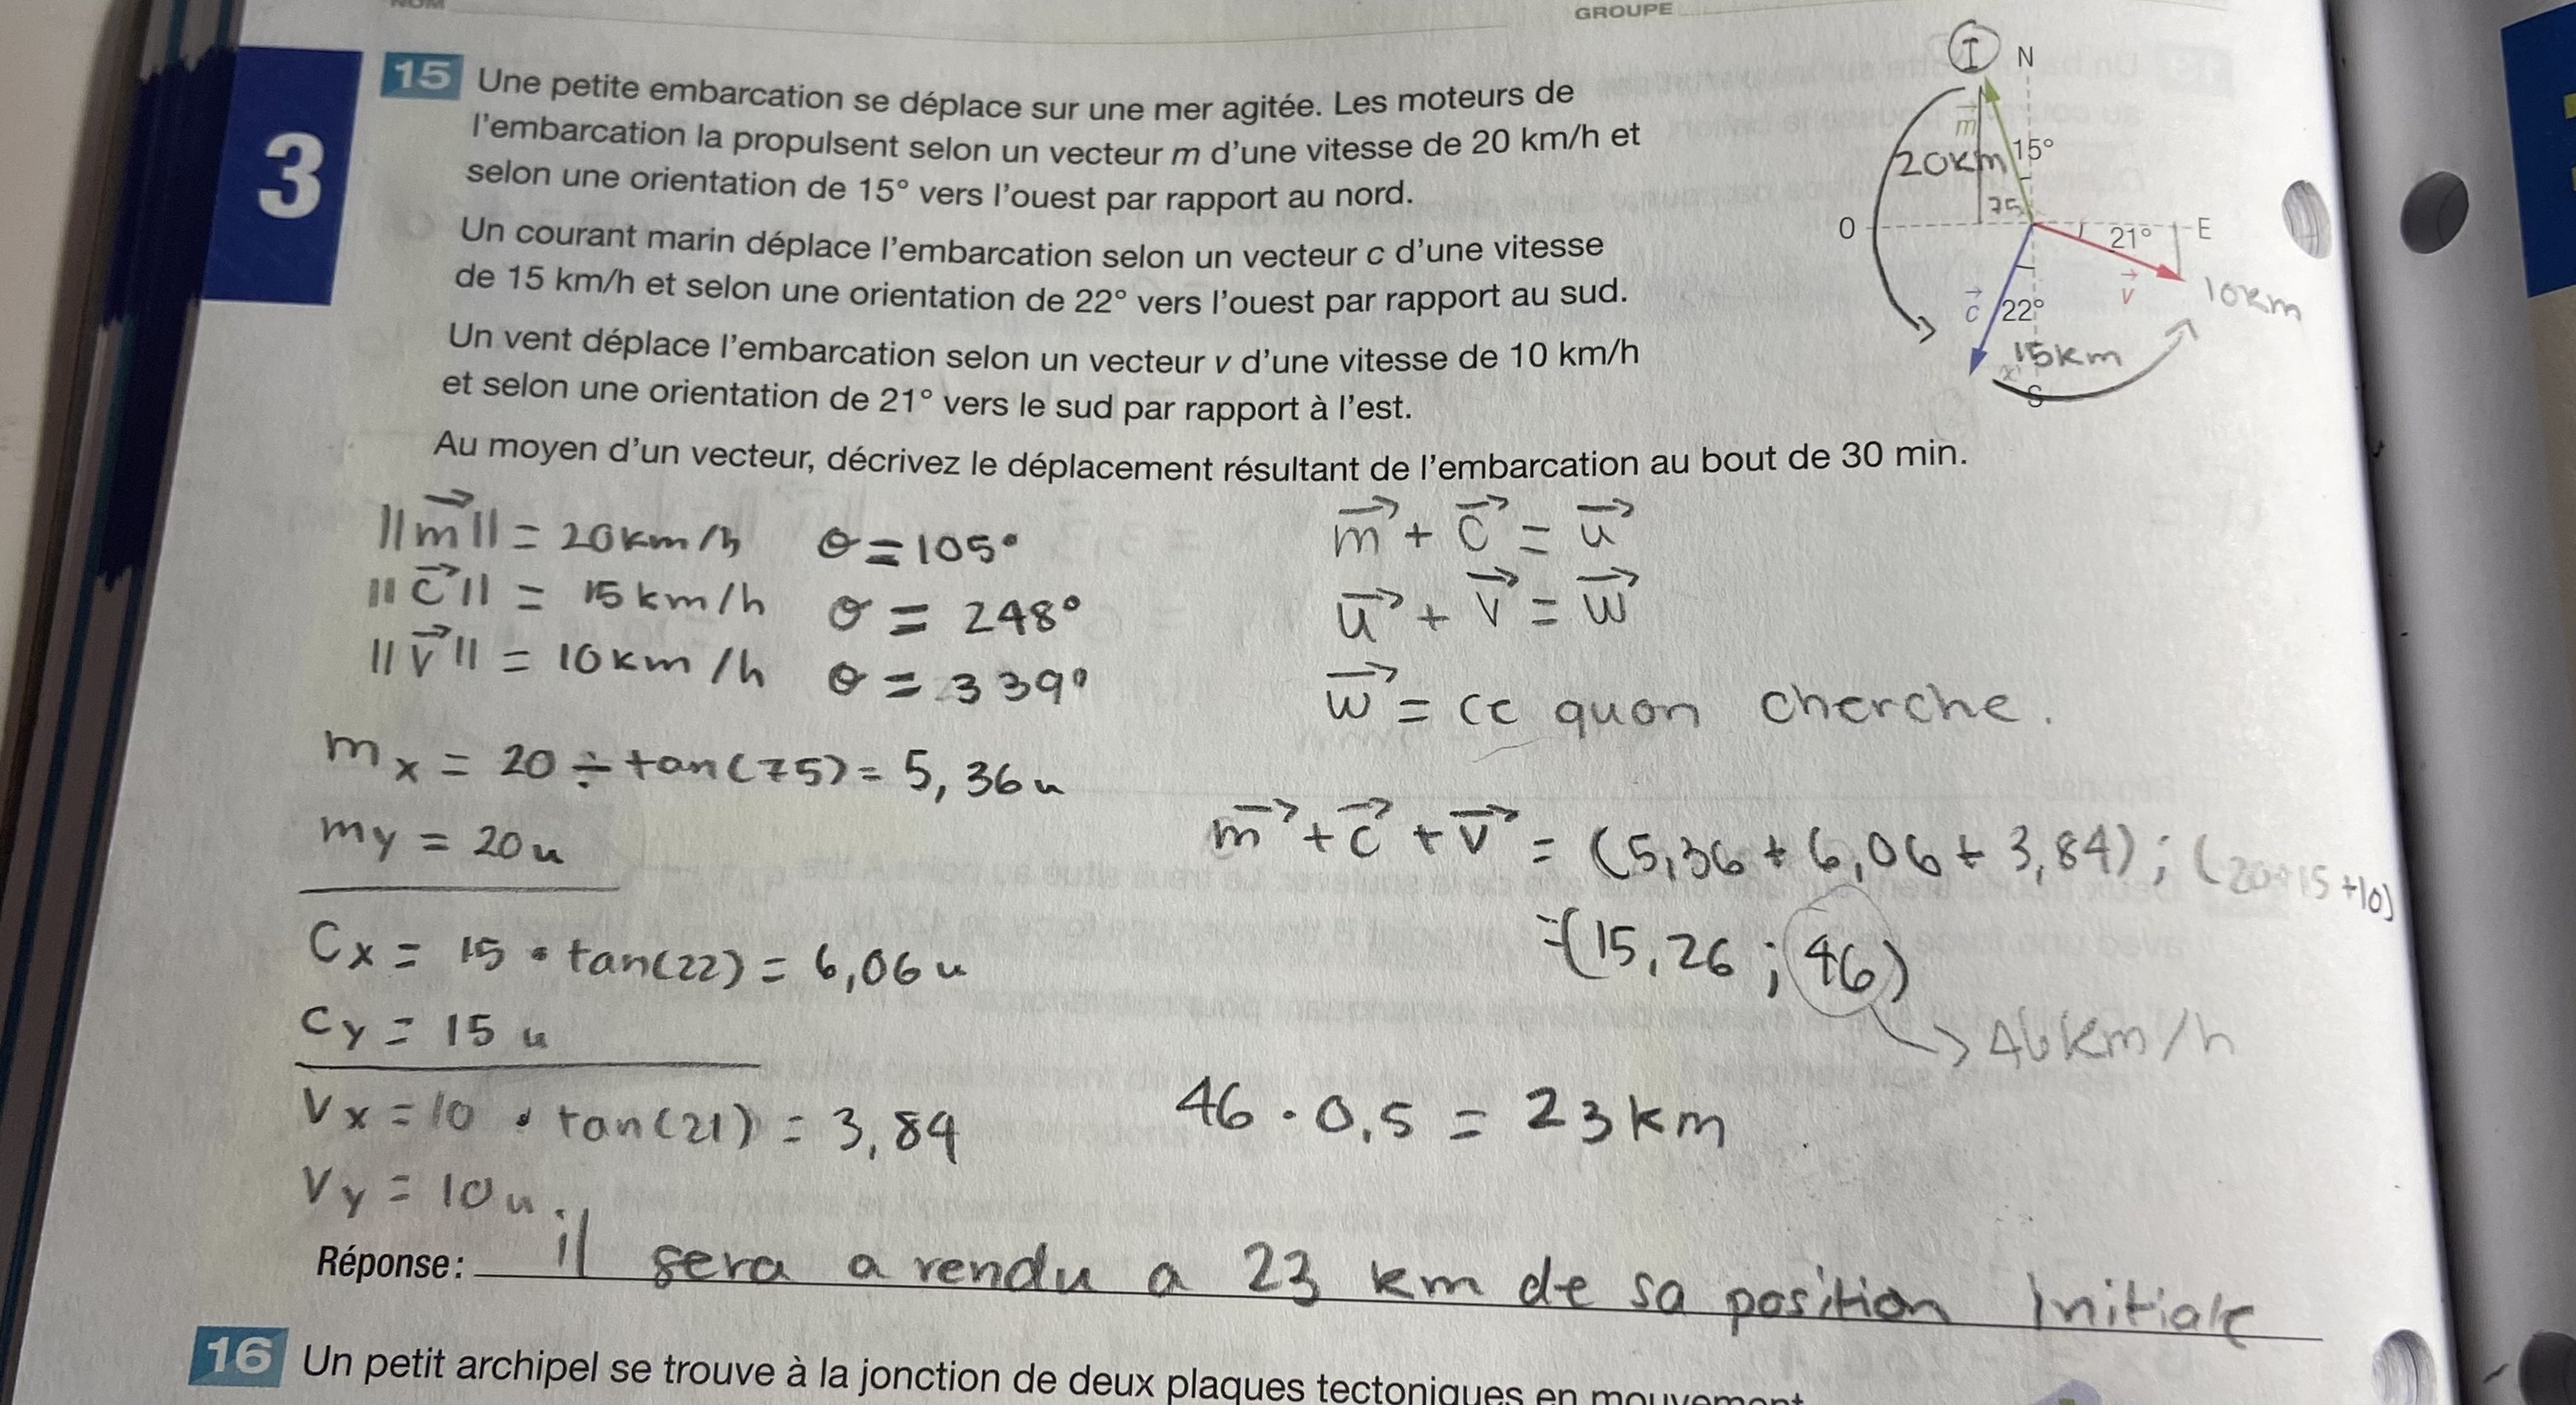 NOM
GROUPE
3
15 Une petite embarcation se déplace sur une mer agitée. Les moteurs de
l'embarcation la propulsent selon un vecteur m d'une vitesse de 20 km/h et
selon une orientation de 15° vers l'ouest par rapport au nord.
Un courant marin déplace l'embarcation selon un vecteur c d'une vitesse
de 15 km/h et selon une orientation de 22° vers l'ouest par rapport au sud.
Un vent déplace l'embarcation selon un vecteur v d'une vitesse de 10 km/h
et selon une orientation de 21° vers le sud par rapport à l'est.
Au moyen d'un vecteur, décrivez le déplacement résultant de l'embarcation au bout de 30 min.
I N
m⃗
20km 15°
75
O E
21°
v⃗ 10km
c⃗ 22°
15km
S
||m⃗|| = 20km/h θ = 105°
||c⃗|| = 15km/h θ = 248°
||v⃗|| = 10km/h θ = 339°
m⃗ + c⃗ = u⃗
u⃗ + v⃗ = w⃗
w⃗ = ce quon cherche.
mx = 20 ÷ tan(75) = 5,36u
my = 20u
Cx = 15 • tan(22) = 6,06u
Cy = 15u
Vx = 10 • tan(21) = 3,84
Vy = 10u
m⃗ + c⃗ + v⃗ = (5,36 + 6,06 + 3,84) ; (20+15+10)
=(15,26 ; 46)
→ 46km/h
46 · 0,5 = 23km
Réponse: il sera a rendu a 23 km de sa position Initiale
16 Un petit archipel se trouve à la jonction de deux plaques tectoniques en mouvement